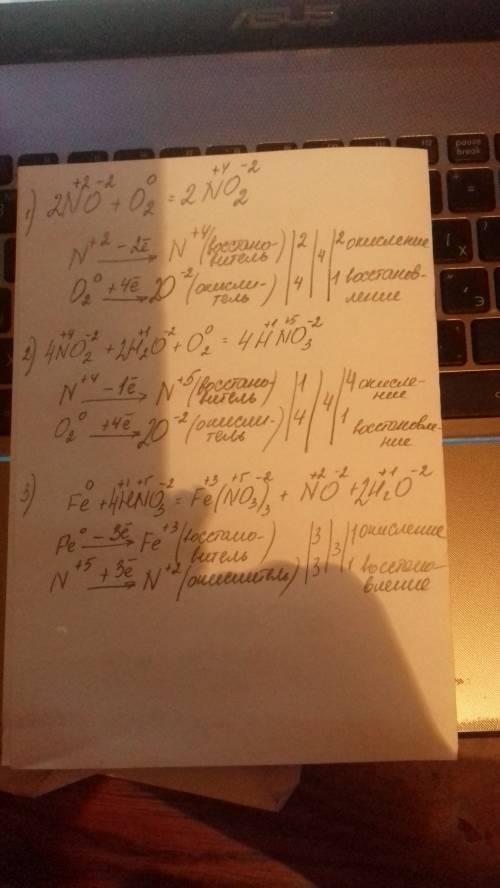 ASUS
pause break
1) 2N⁺²O⁻² + O₂⁰ = 2N⁺⁴O₂⁻²
N⁺² −2ē → N⁺⁴ (восстановитель) | 2 | 4 | 2 окисление
O₂⁰ +4ē → 2O⁻² (окислитель) | 4 | | 1 восстановление
2) 4N⁺⁴O₂⁻² + 2H₂⁺¹O⁻² + O₂⁰ = 4H⁺¹N⁺⁵O₃⁻²
N⁺⁴ −1ē → N⁺⁵ (восстановитель) | 1 | 4 | 4 окисление
O₂⁰ +4ē → 2O⁻² (окислитель) | 4 | | 1 восстановление
3) Fe⁰ + 4H⁺¹N⁺⁵O₃⁻² = Fe⁺³(N⁺⁵O₃⁻²)₃ + N⁺²O⁻² + 2H₂⁺¹O⁻²
Fe⁰ −3ē → Fe⁺³ (восстановитель) | 3 | 3 | 1 окисление
N⁺⁵ +3ē → N⁺² (окислитель) | 3 | | 1 восстановление